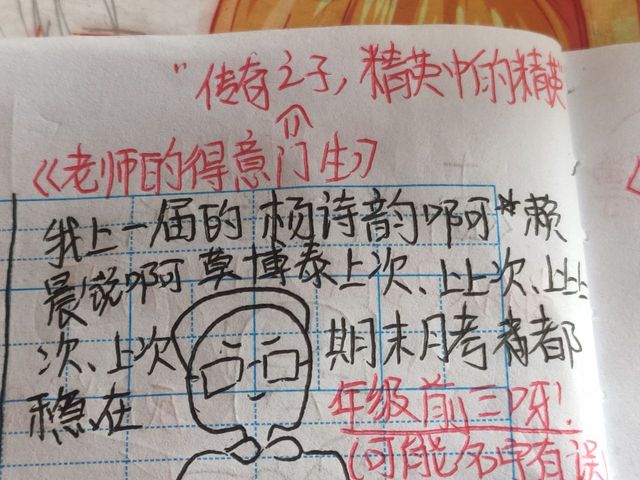 "传奇之子，精英中的精英
《老师的得意门生》
我上一届的 杨诗韵啊啊*赖
晨悦啊啊 莫博泰上次、上上次、上上上
次、上次 期末月考都
稳在
年级前三呀！
(可能名字有误